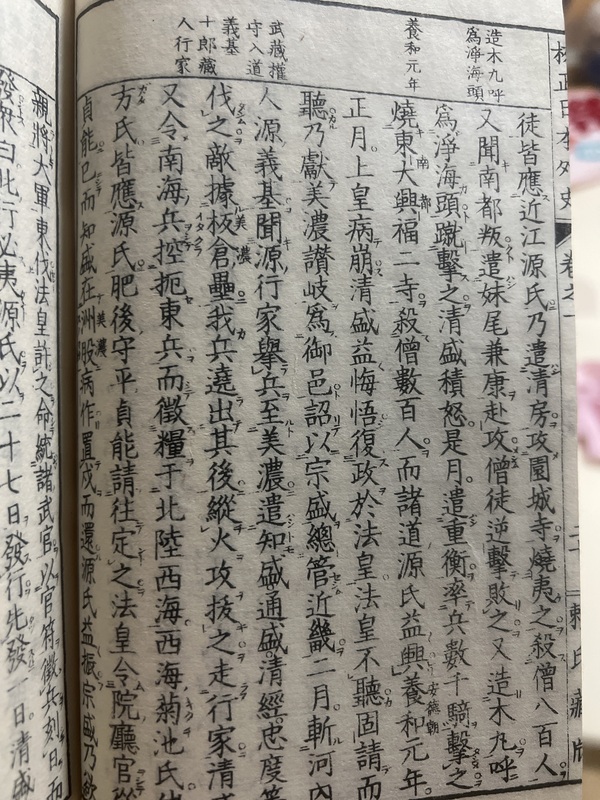 校正日本外史 卷之一 賴氏藏版
造木九呼
爲淨海頭
養和元年
武藏權
守入道
義基
十郎藏
人行家
徒皆應近江源氏乃遣清房攻園城寺燒夷之殺僧八百人
又聞南都叛遣妹尾兼康赴攻僧徒逆擊敗之又造木九呼
爲淨海頭蹴擊之清盛積怒是月遣重衡率兵數千騎擊之
燒東大興福二寺殺僧數百人而諸道源氏益興養和元年
正月上皇病崩清盛益悔悟復政於法皇法皇不聽固請而
聽乃獻美濃讚岐爲御邑詔以宗盛總管近畿二月斬河內
人源義基聞源行家擧兵至美濃遣知盛通盛清經忠度等
伐之敵據板倉壘我兵遶出其後縱火攻拔之走行家清
又令南海兵控扼東兵而徵糧于北陸西海西海菊池氏
方氏皆應源氏肥後守平貞能請往定之法皇令院廳官
貞能已而知盛在洲股病作置戍而還源氏益振宗盛乃
親將大軍東伐法皇許之命統諸武官以官符徵兵刻日而
發衆曰此行必夷源氏以二十七日發行先發一日清盛